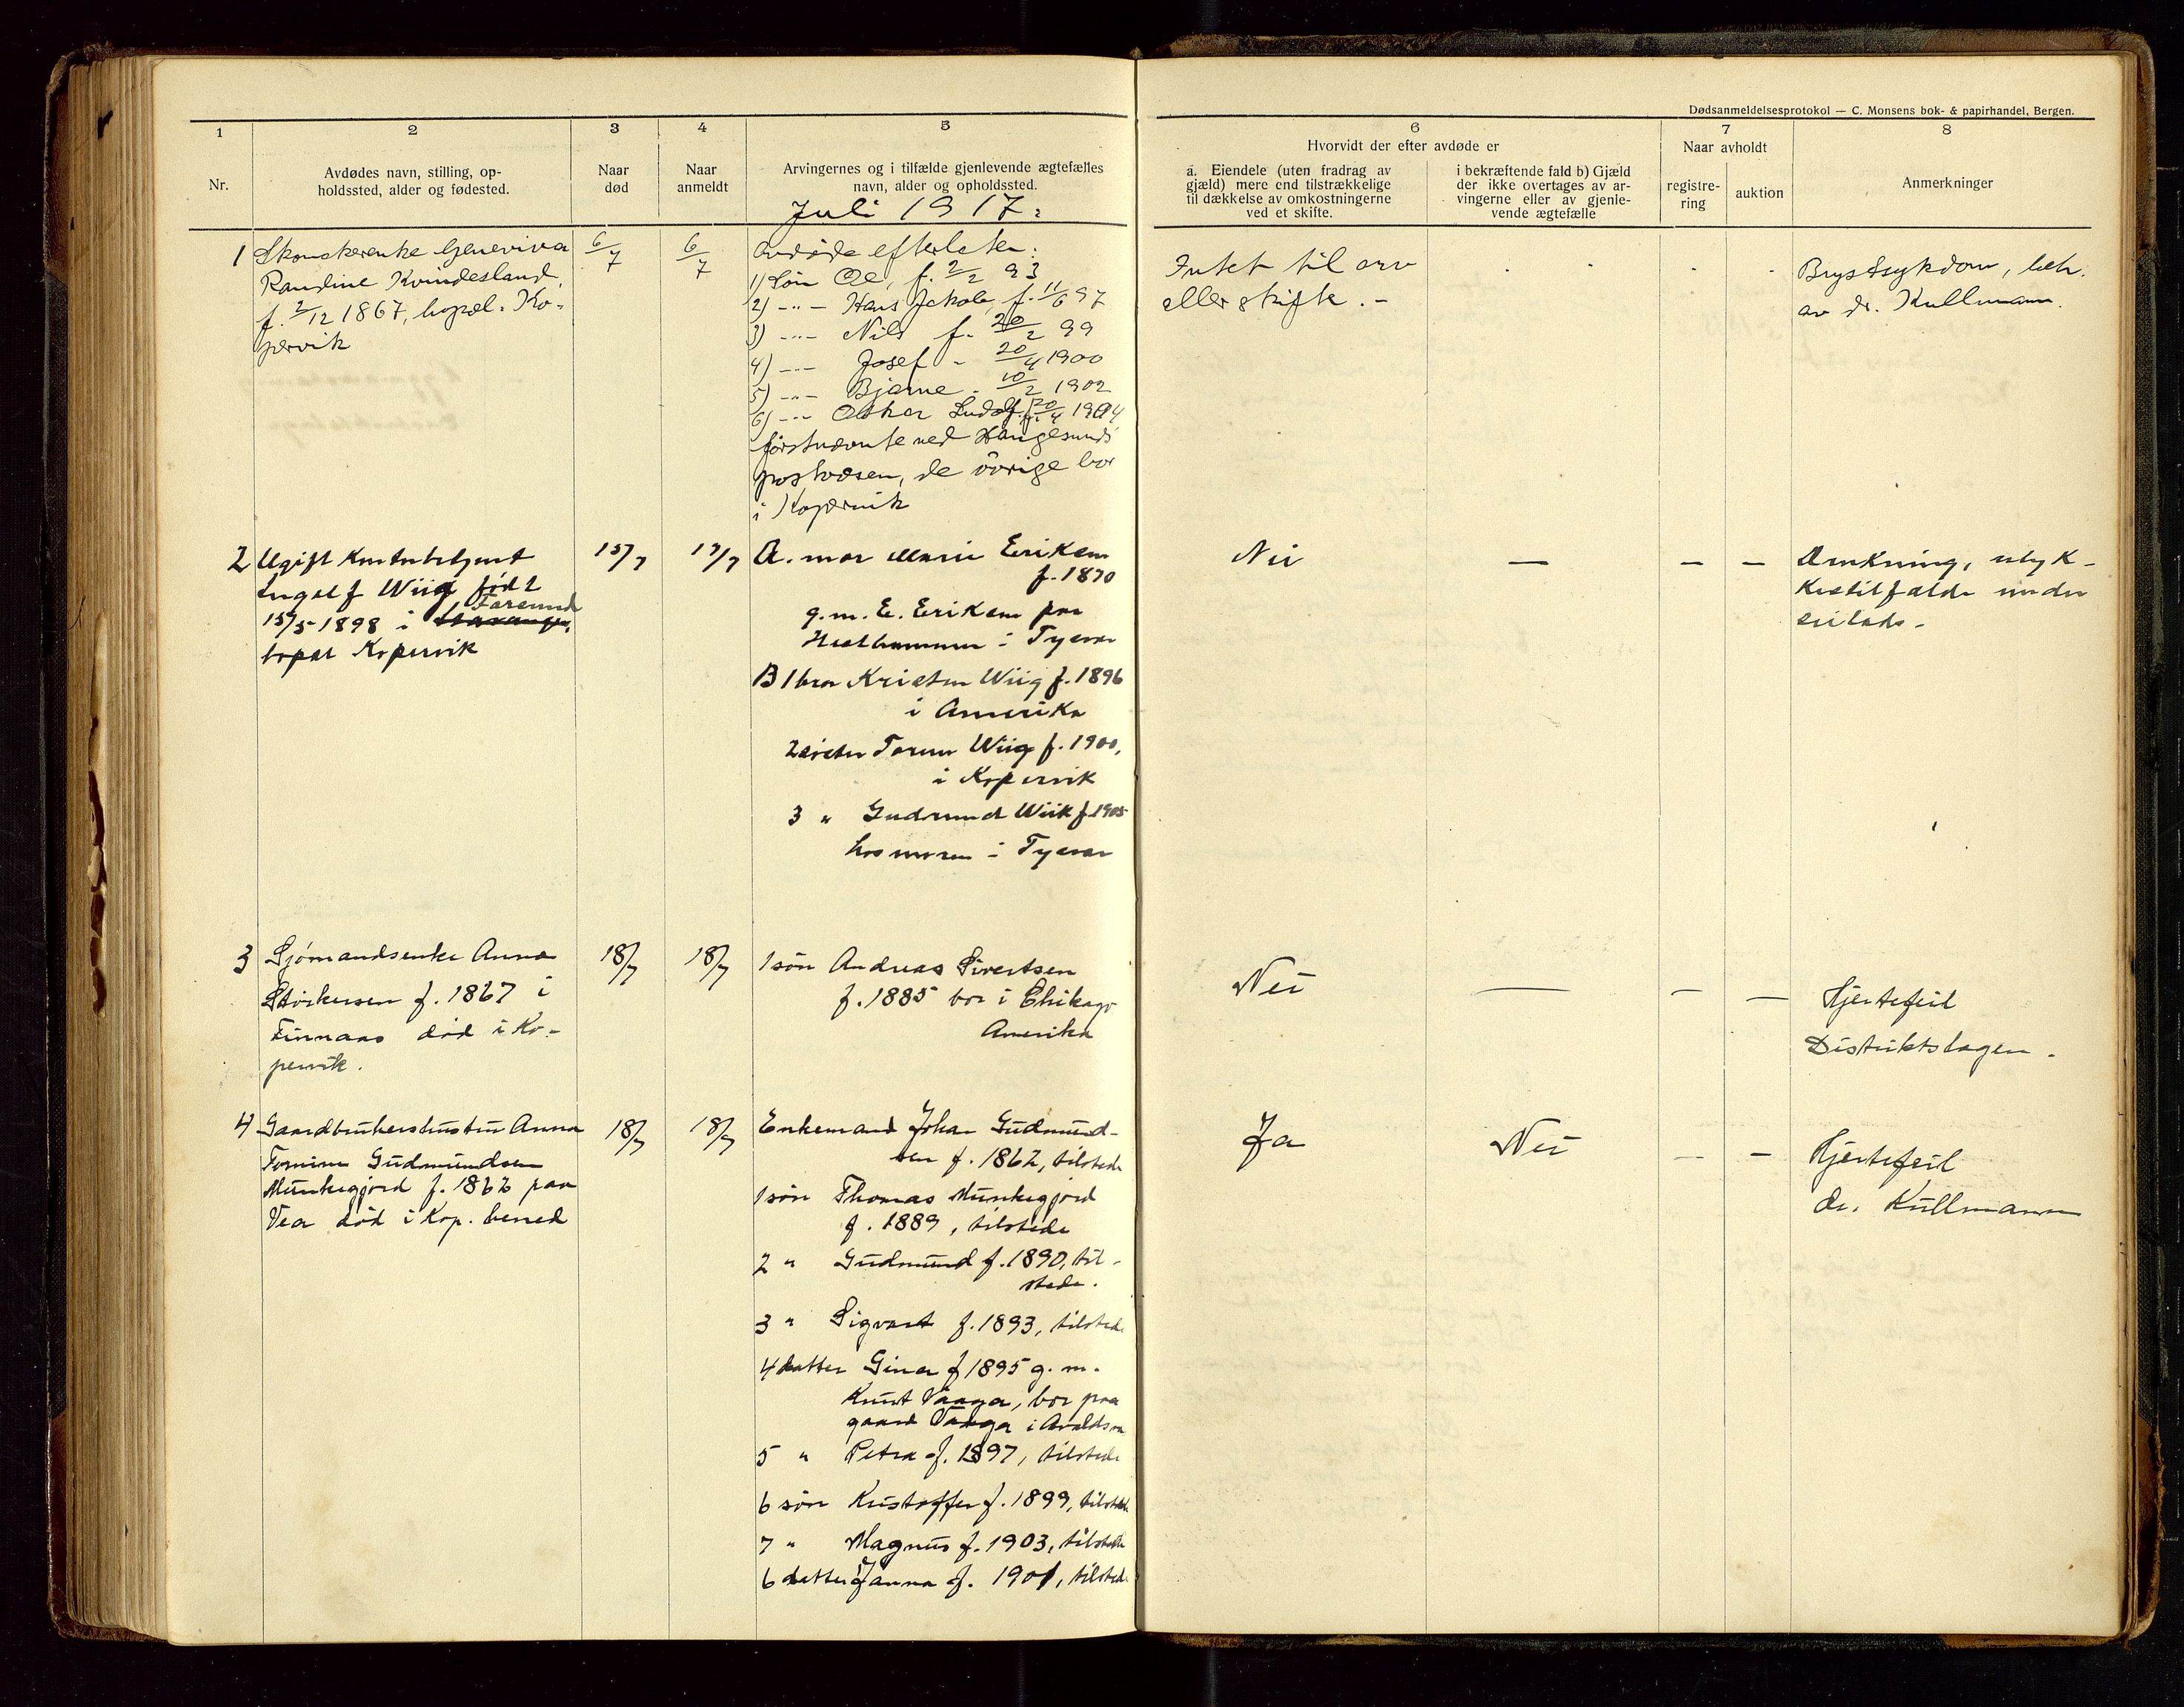 Dødsanmeldelsesprotokol — C. Monsens bok- & papirhandel, Bergen.
1
Nr.
2
Avdødes navn, stilling, op-
holdssted, alder og fødested.
3
Naar
død
4
Naar
anmeldt
5
Arvingernes og i tilfælde gjenlevende ægtefælles
navn, alder og opholdssted.
6
Hvorvidt der efter avdøde er
a. Eiendele (uten fradrag av
gjæld) mere end tilstrækkelige
til dækkelse av omkostningerne
ved et skifte.
i bekræftende fald b) Gjæld
der ikke overtages av ar-
vingerne eller av gjenle-
vende ægtefælle
7
Naar avholdt
registre-
ring
auktion
8
Anmerkninger
Juli 1917.
1 Skomakerenke Geneviva
Randine Kvindesland,
f. 2/12 1867, bopæl: Ko-
pervik
6/7
6/7
Avdøde efterlater:
1) Søn Ole, f. 2/2 93
2) -"- Hans Jakob, f. 11/6 97
3) -"- Nils f. 20/2 99
4) -"- Josef - 20/4 1900
5) -"- Bjarne - 10/2 1902
6) -"- Oskar Ludolf f. 20/4 1904
førstnævnte ved Haugesunds
postvæsen, de övrige bor
i Kopervik
Intet til arv
eller skifte. -
Brystsykdom, beh.
av dr. Kullmann.
2 Ugift Kontorbetjent
Ingolf Wiig født
Farsund
15/5 1898 i Stavanger,
bopæl Kopervik
15/7
17/7
A. mor Marie Eriksen
f. 1870
g. m. E. Eriksen paa
i Tysvær
B 1 bror Kristen Wiig f. 1896
i Amerika
2 søster Wiig f. 1900,
i Kopervik
3 " Gudrun Wiik f. 1905
hos moren i Tysvær
Nei
—
—
—
Drukning, ulyk-
kestilfælde under
seilads.
3 Sjømandsenke Anna
Størkersen f. 1867 i
Finnaas död i Ko-
pervik.
18/7
18/7
1 søn Andreas Sivertsen
f. 1885 bor i Chikago
Amerika
Nei
—
—
—
Hjertefeil
Distriktslægen.
4 Gaardbrukerhustru Anna
Tomine Gudmundsen
Munkegjord f. 1862 paa
Vea död i Kop. herred
18/7
18/7
Enkemand Johan Gudmund-
sen f. 1862, tilstede
1 søn Thomas Munkegjord
f. 1889, tilstede
2 " Gudmund f. 1890, til-
stede.
3 " Sigvart f. 1893, tilstede
4 datter Gina f 1895 g. m.
Knut Vaaga, bor paa
gaard Vaaga i Avaldsn
5 " Petra f. 1897, tilstede
6 søn Kristoffer f. 1899, tilstede
7 " Magnus f. 1903, tilstede
6 datter Janna f. 1901, tilstede
Ja
Nei
—
—
Hjertefeil
dr. Kullmann